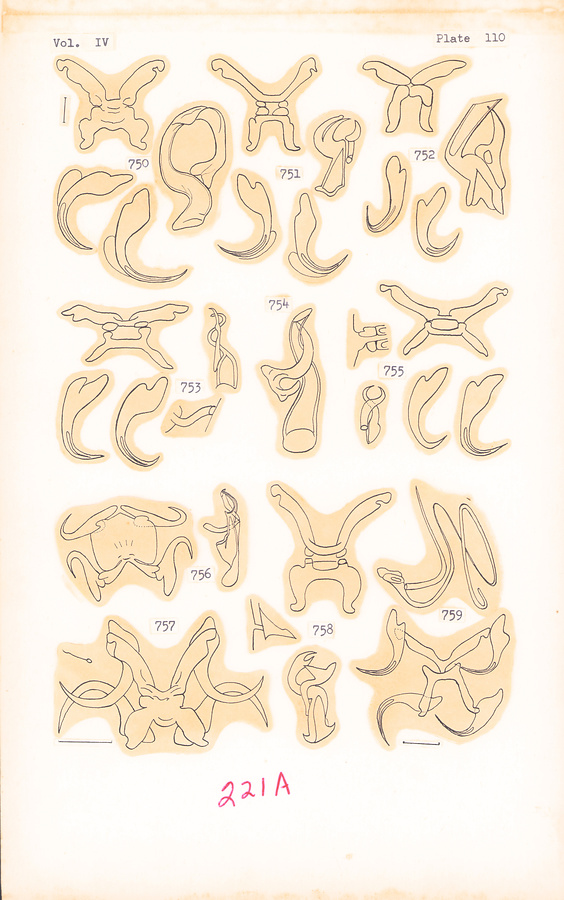 Vol. IV
Plate 110
750
751
752
753
754
755
756
757
758
759
221A